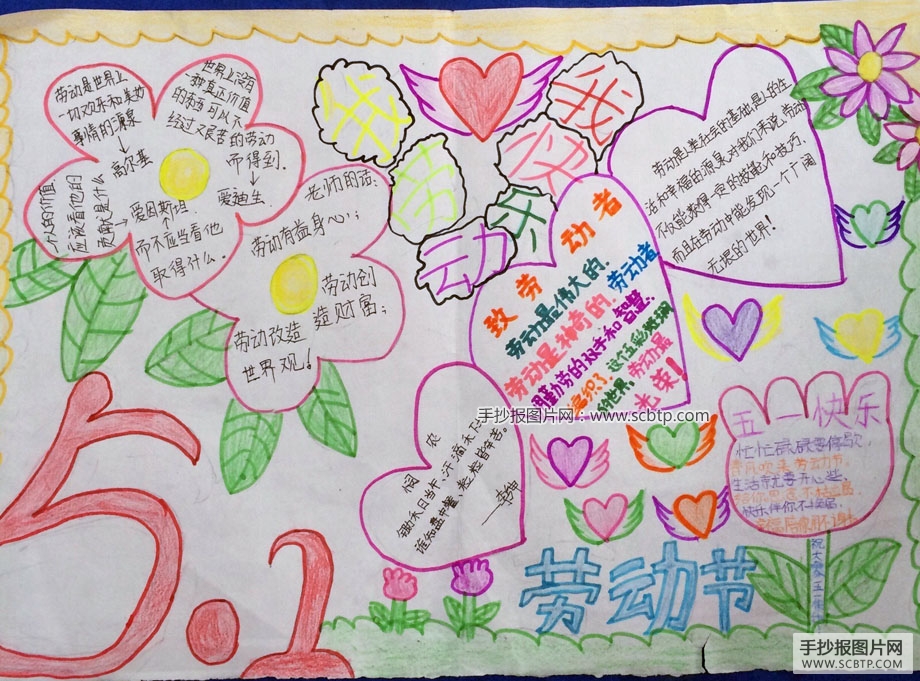 劳动是世界上
一切欢乐和美妙
事情的源泉
高尔基
世界上没有
一种真正价值
的东西可以不
经过艰苦的劳动
而得到.
爱迪生
一个人的价值
应该看他的
贡献是什么
爱因斯坦
而不应当看他
取得什么.
老师的话:
劳动有益身心;
劳动创
造财富;
劳动改造
世界观!
我
快
乐
我
劳
动
致劳动者
劳动最伟大的.劳动者
劳动是神奇的.
用勤劳的双手和智慧.
编织了这个五彩斑斓
的世界,劳动最
光荣!
劳动是人类社会的基础是人的生
活和幸福的源泉,对我们来说,劳动
不仅能获得一定的故事和技巧,
而且在劳动中能发现一个广阔
无垠的世界!
悯农
锄禾日当午,汗滴禾下土
谁知盘中餐,粒粒皆辛苦。
——李绅
手抄报图片网:www.scbtp.com
五一快乐
忙忙碌碌要停歇,
生活就要开心些
快乐伴你不停留,
五.一
劳动节
手抄报图片网
WWW.SCBTP.COM